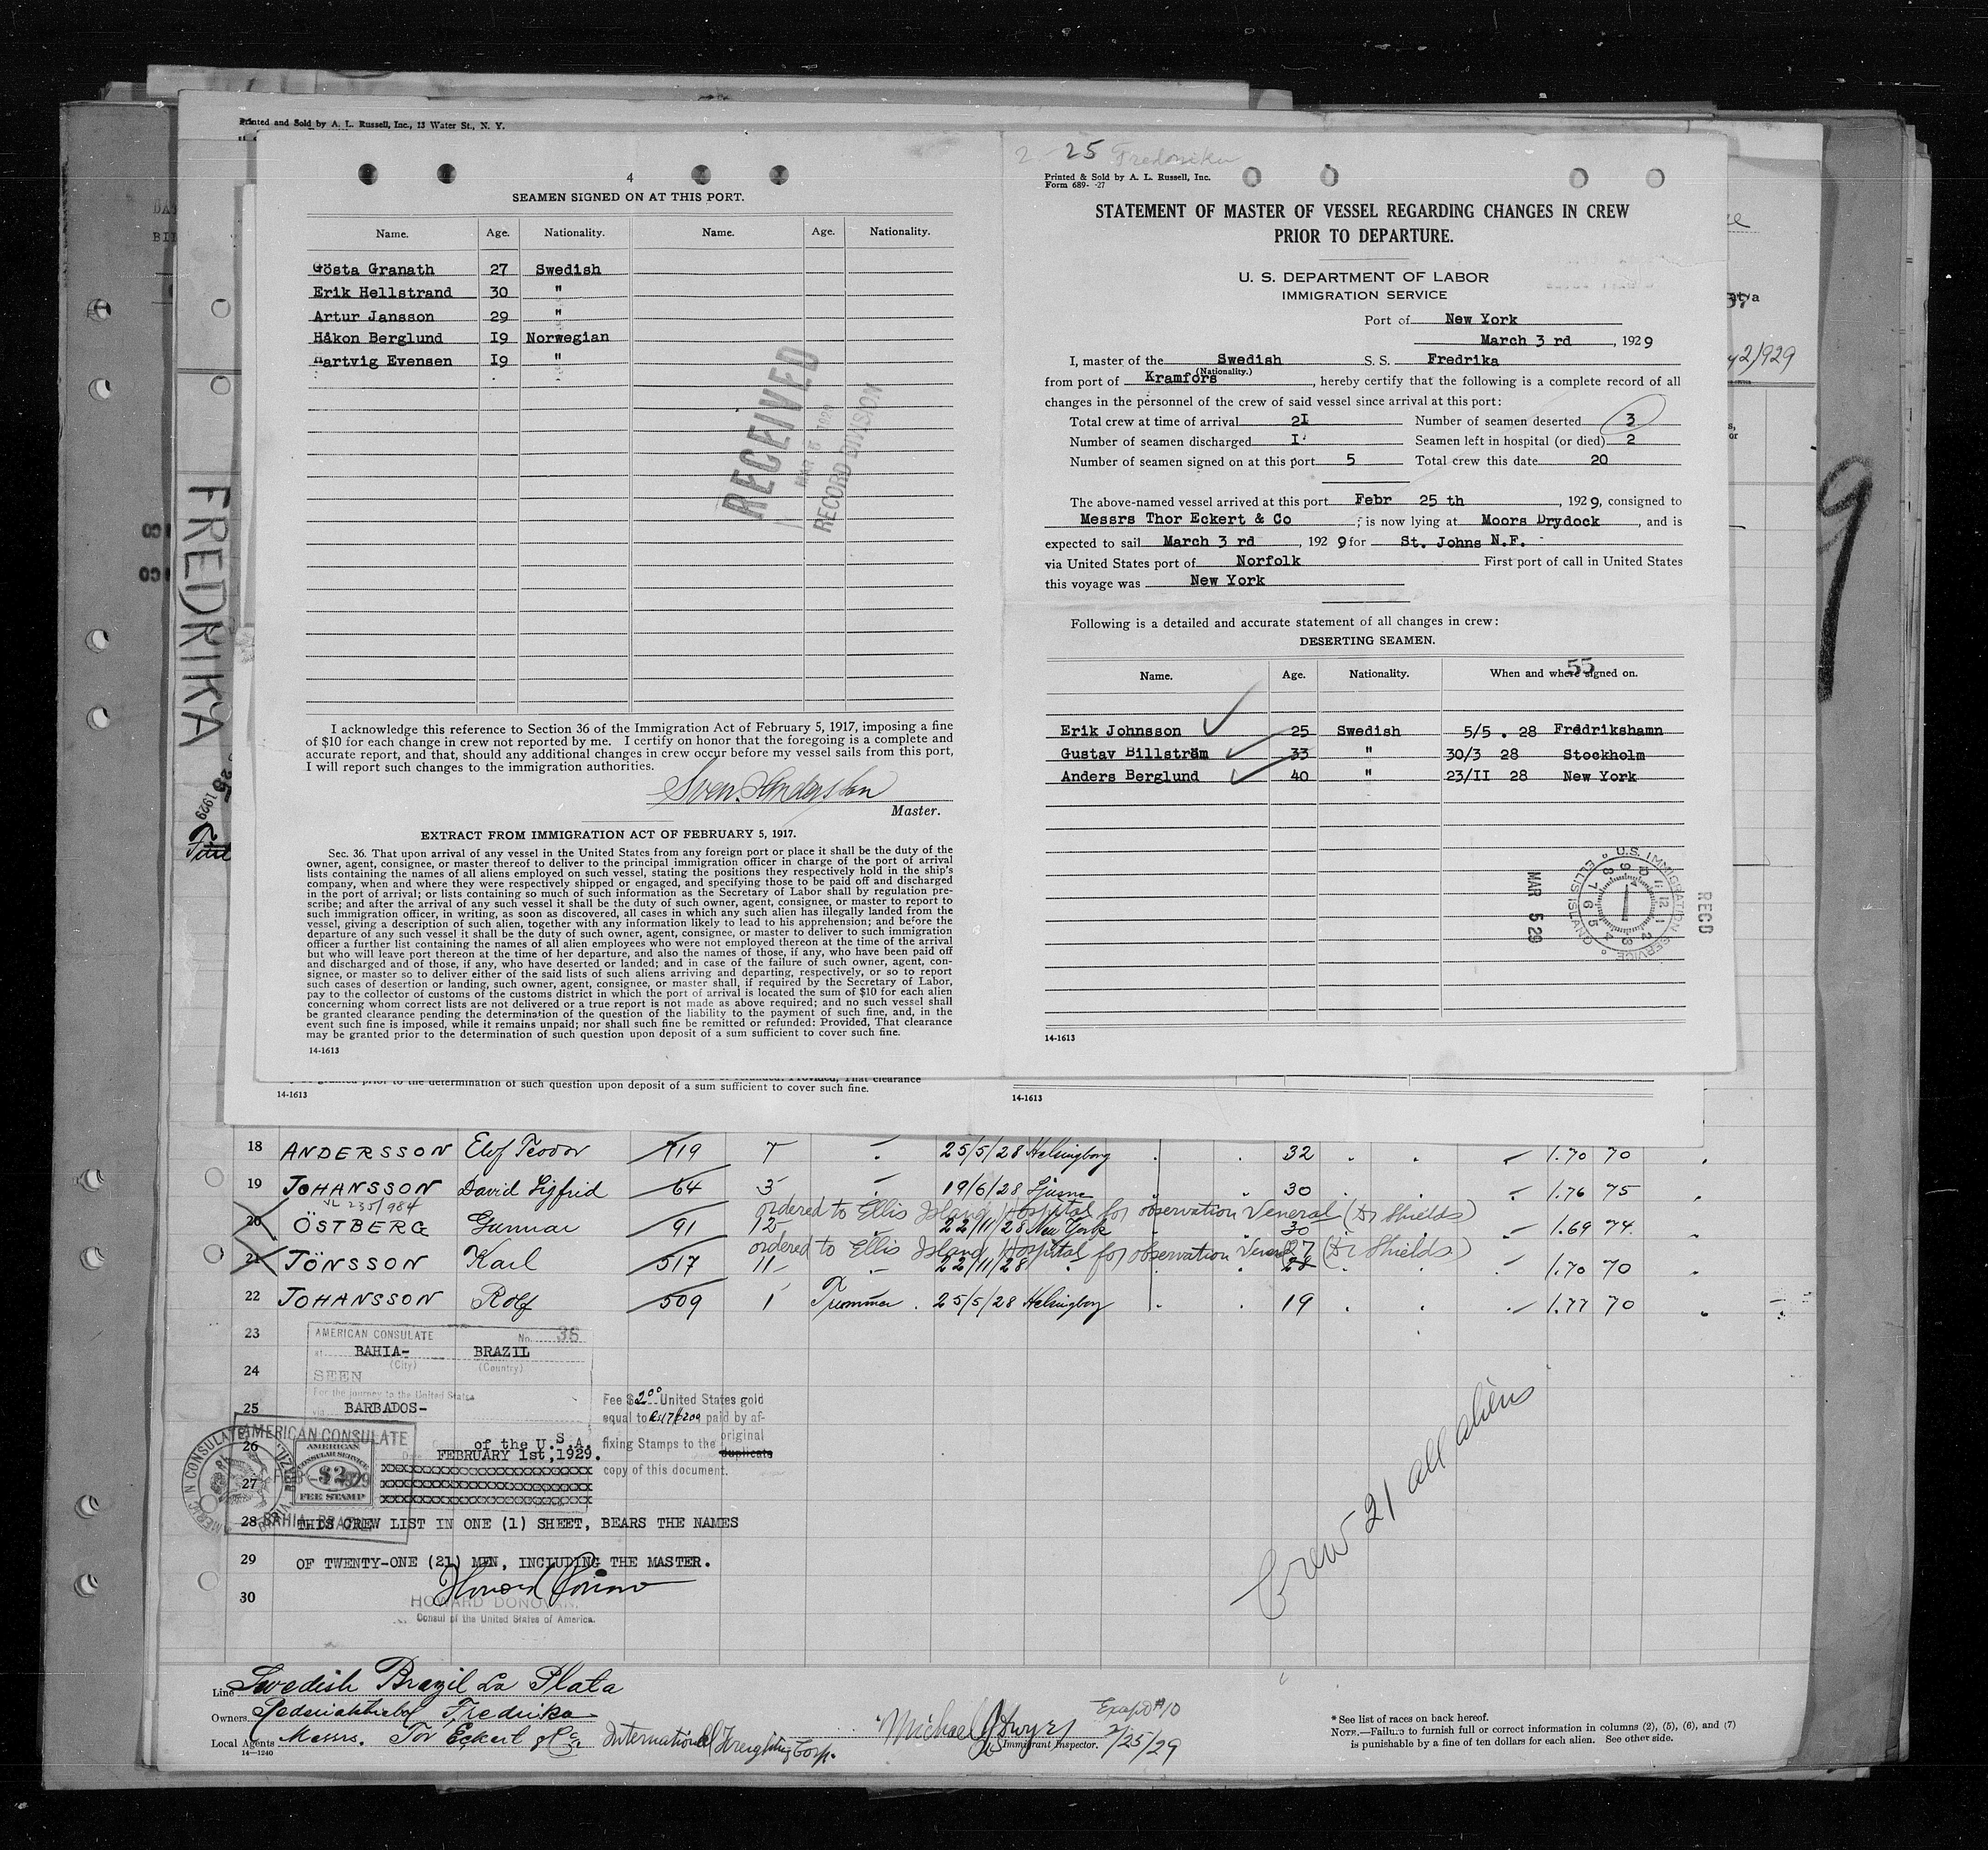 Printed and Sold by A. L. Russell, Inc., 13 Water St., N. Y.
4
SEAMEN SIGNED ON AT THIS PORT.
Name. Age. Nationality. Name. Age. Nationality.
Gösta Granath 27 Swedish
Erik Hellstrand 30 "
Artur Jansson 29 "
Håkon Berglund I9 Norwegian
Hartvig Evensen I9 "
RECEIVED
RECORD DIVISION
I acknowledge this reference to Section 36 of the Immigration Act of February 5, 1917, imposing a fine
of $10 for each change in crew not reported by me. I certify on honor that the foregoing is a complete and
accurate report, and that, should any additional changes in crew occur before my vessel sails from this port,
I will report such changes to the immigration authorities.
Sven. Andersson
Master.
EXTRACT FROM IMMIGRATION ACT OF FEBRUARY 5, 1917.
Sec. 36. That upon arrival of any vessel in the United States from any foreign port or place it shall be the duty of the
owner, agent, consignee, or master thereof to deliver to the principal immigration officer in charge of the port of arrival
lists containing the names of all aliens employed on such vessel, stating the positions they respectively hold in the ship's
company, when and where they were respectively shipped or engaged, and specifying those to be paid off and discharged
in the port of arrival; or lists containing so much of such information as the Secretary of Labor shall by regulation pre-
scribe; and after the arrival of any such vessel it shall be the duty of such owner, agent, consignee, or master to report to
such immigration officer, in writing, as soon as discovered, all cases in which any such alien has illegally landed from the
vessel, giving a description of such alien, together with any information likely to lead to his apprehension; and before the
departure of any such vessel it shall be the duty of such owner, agent, consignee, or master to deliver to such immigration
officer a further list containing the names of all alien employees who were not employed thereon at the time of the arrival
but who will leave port thereon at the time of her departure, and also the names of those, if any, who have been paid off
and discharged and of those, if any, who have deserted or landed; and in case of the failure of such owner, agent, con-
signee, or master so to deliver either of the said lists of such aliens arriving and departing, respectively, or so to report
such cases of desertion or landing, such owner, agent, consignee, or master shall, if required by the Secretary of Labor,
pay to the collector of customs of the customs district in which the port of arrival is located the sum of $10 for each alien
concerning whom correct lists are not delivered or a true report is not made as above required; and no such vessel shall
be granted clearance pending the determination of the question of the liability to the payment of such fine, and, in the
event such fine is imposed, while it remains unpaid; nor shall such fine be remitted or refunded: Provided, That clearance
may be granted prior to the determination of such question upon deposit of a sum sufficient to cover such fine.
14-1613
2-25 Fredrika
Printed & Sold by A. L. Russell, Inc.
Form 689- -27
STATEMENT OF MASTER OF VESSEL REGARDING CHANGES IN CREW
PRIOR TO DEPARTURE.
U. S. DEPARTMENT OF LABOR
IMMIGRATION SERVICE
Port of New York
March 3 rd, 1929
I, master of the Swedish S. S. Fredrika
(Nationality.)
from port of Kramfors, hereby certify that the following is a complete record of all
changes in the personnel of the crew of said vessel since arrival at this port:
Total crew at time of arrival 2I Number of seamen deserted 3
Number of seamen discharged I Seamen left in hospital (or died) 2
Number of seamen signed on at this port 5 Total crew this date 20
The above-named vessel arrived at this port Febr 25 th, 1929, consigned to
Messrs Thor Eckert & Co; is now lying at Moors Drydock, and is
expected to sail March 3 rd, 1929 for St. Johns N.F.
via United States port of Norfolk First port of call in United States
this voyage was New York
Following is a detailed and accurate statement of all changes in crew:
DESERTING SEAMEN.
55
Name. Age. Nationality. When and where signed on.
Erik Johnsson 25 Swedish 5/5 . 28 Fredrikshamn
Gustav Billström 33 " 30/3 28 Stockholm
Anders Berglund 40 " 23/II 28 New York
U.S. IMMIGRATION SERVICE ELLIS ISLAND
MAR 5 29
RECD
14-1613
FREDRIKA
25 1929
determination of such question upon deposit of a sum sufficient to cover such fine.
14-1613
14-1613
18 ANDERSSON Elof Teodor 719 7 25/5/28 Helsingborg 32 1.70 70
19 JOHANSSON David Sigfrid 64 5 19/6/28 Ljusne 30 1.76 75
ordered to Ellis Island Hospital for observation Veneral (Dr Shields)
20 ÖSTBERG Gunnar 91 12 22/11/28 New York 30 1.69 74
ordered to Ellis Island Hospital for observation Veneral (Dr Shields)
21 JÖNSSON Karl 517 11 22/11/28 " 27 28 1.70 70
22 JOHANSSON Rolf 509 1 Trimmer 25/5/28 Helsingborg 19 1.77 70
23
24
25
26
27
28
29
30
AMERICAN CONSULATE No. 36
at BAHIA- BRAZIL
(City) (Country)
SEEN
For the journey to the United States
via BARBADOS-
of the U.S.A.
FEBRUARY 1st, 1929.
Fee $2.00 United States gold
equal to paid by af-
fixing Stamps to the original
duplicate
copy of this document.
AMERICAN CONSULATE
AMERICAN CONSULAR SERVICE
$2
FEE STAMP
BAHIA, BRAZIL
THIS CREW LIST IN ONE (1) SHEET, BEARS THE NAMES
OF TWENTY-ONE (21) MEN, INCLUDING THE MASTER.
Howard Donovan
HOWARD DONOVAN.
Consul of the United States of America.
Crew 21 all aliens
Line Swedish Brazil La Plata
Owners Rederiaktiebol Fredrika
Local Agents Messrs. Tor Eckert & Co International Freighting Corp.
14-1240
Michael J Dwyer
Immigrant Inspector.
2/25/29
* See list of races on back hereof.
NOTE.—Failure to furnish full or correct information in columns (2), (5), (6), and (7)
is punishable by a fine of ten dollars for each alien. See other side.